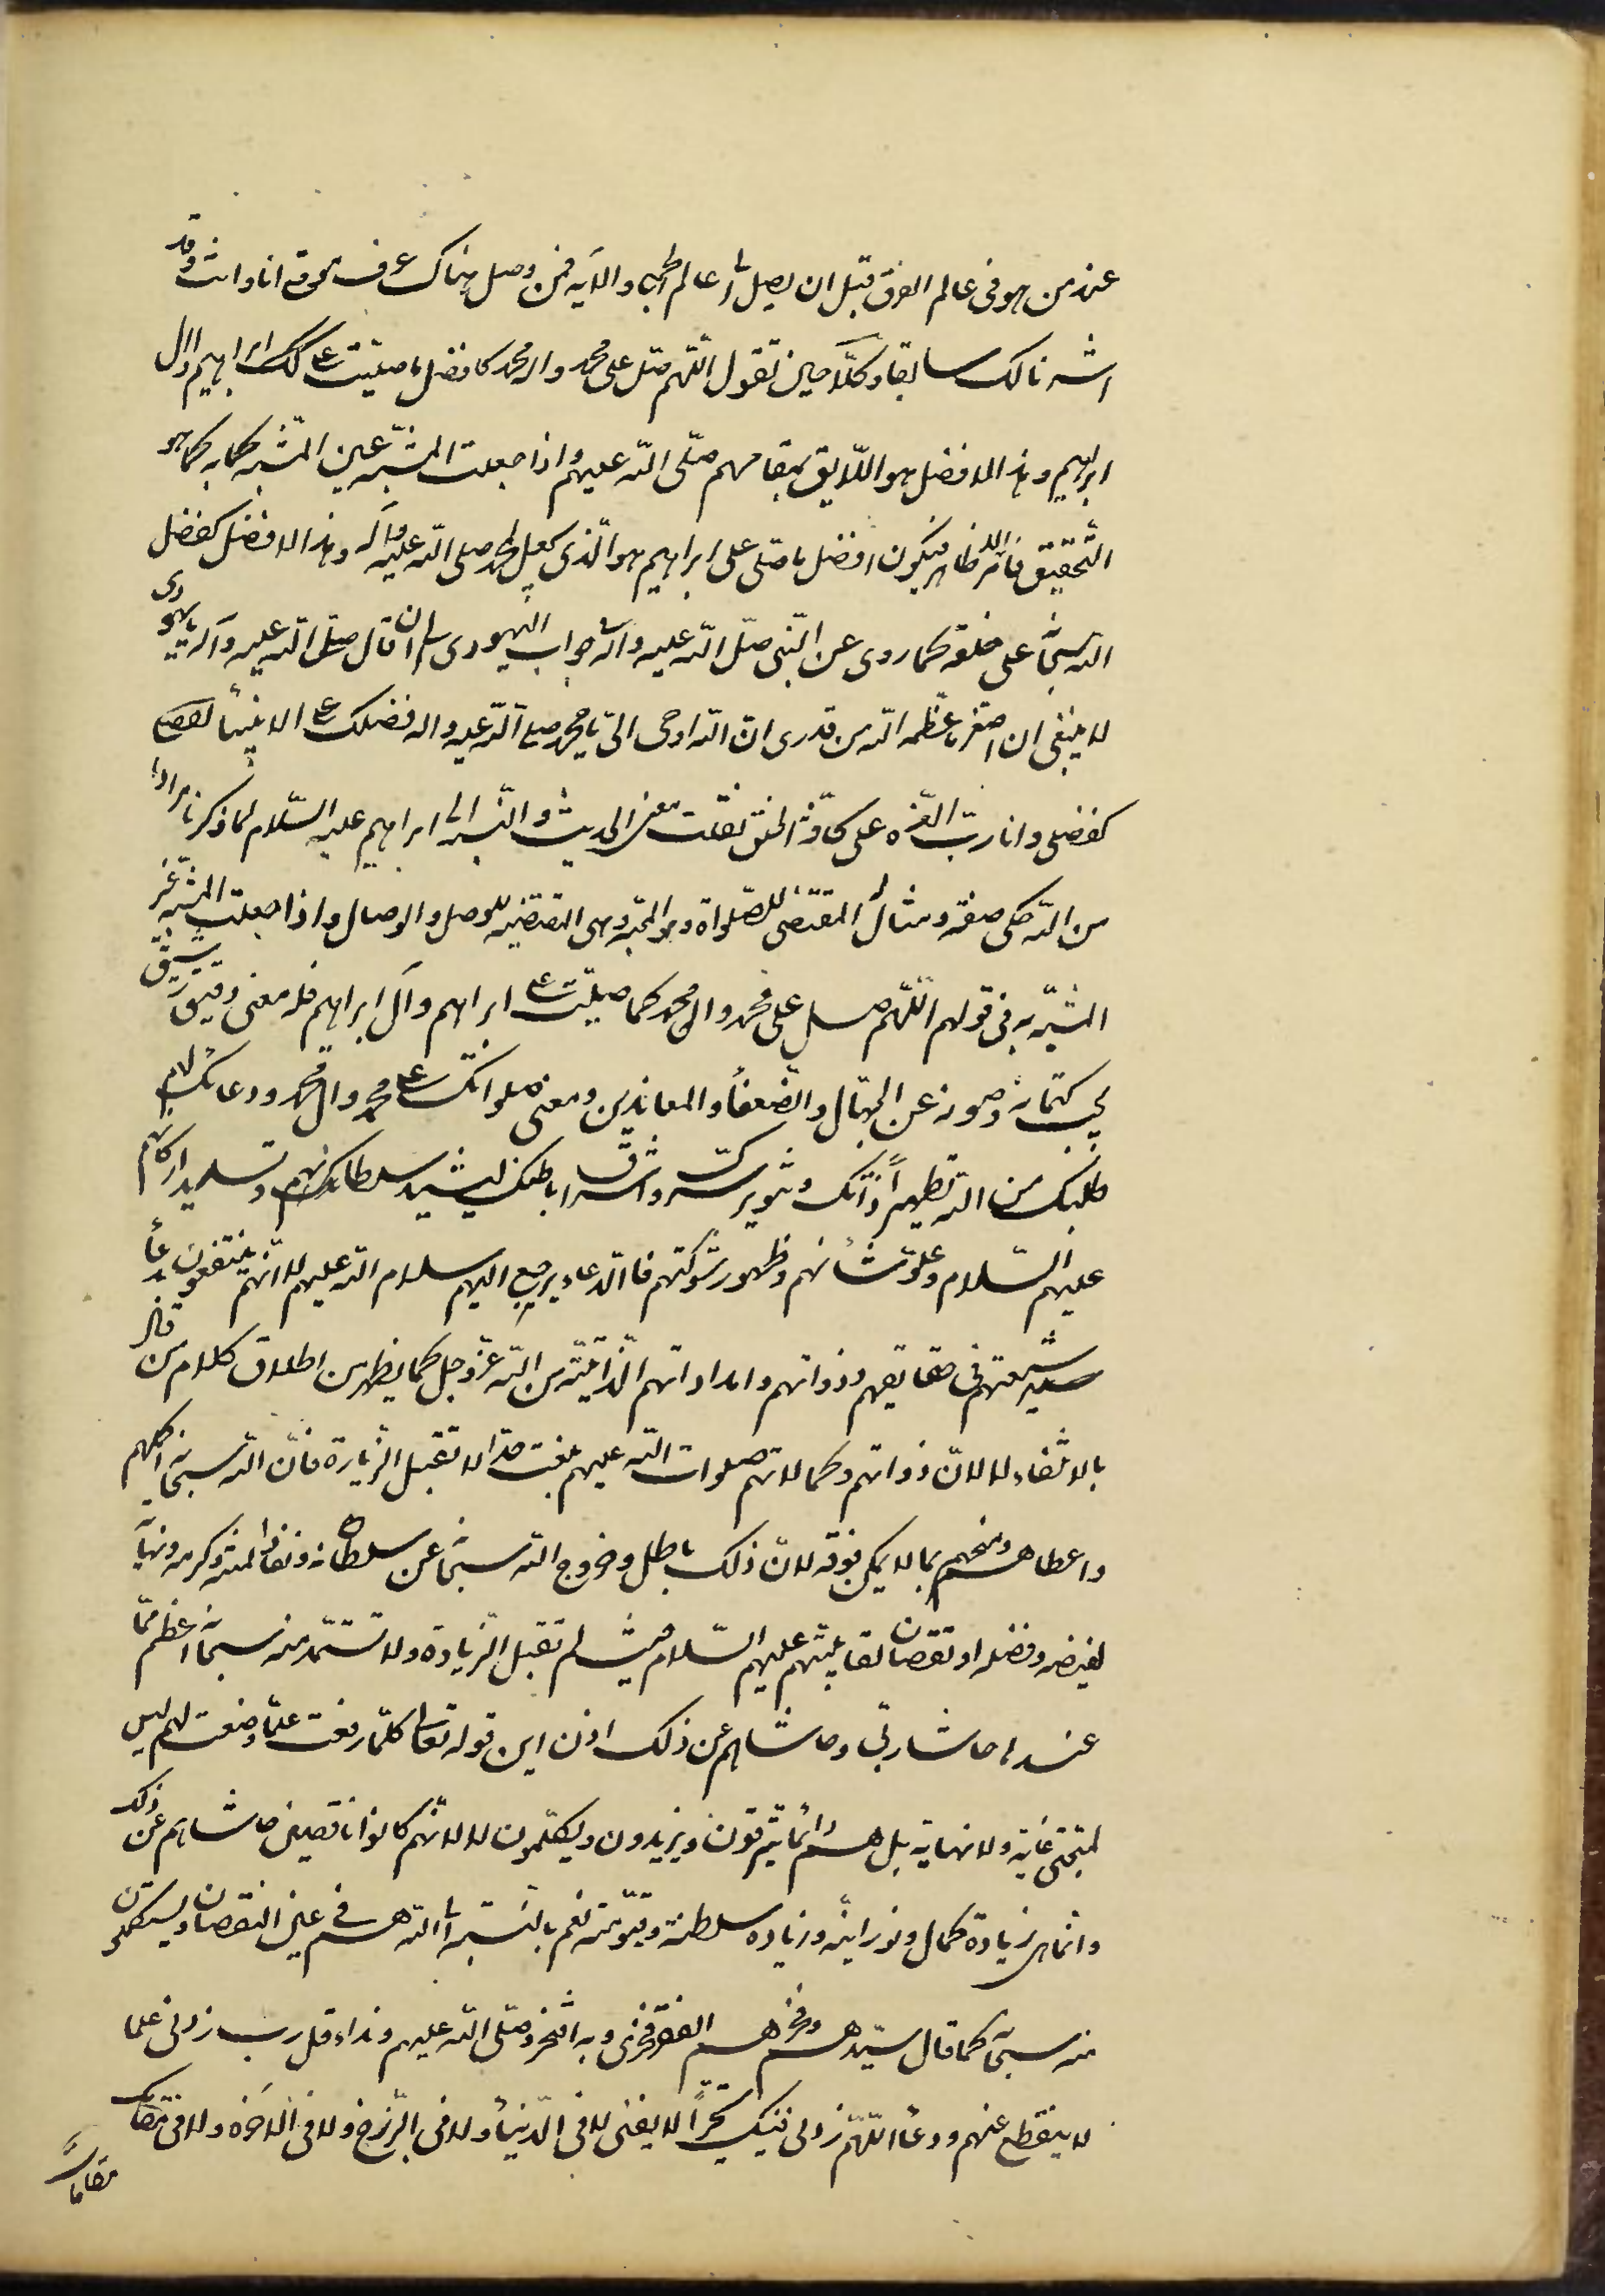 عند من هو فى عالم الفرق قبل ان يصل الى عالم المحبة والآية فمن وصل هناك عرف موقع انا وانت وقد
اشرنا لك سابقا وكلا حين تقول اللهم صل على محمد وال محمد كافضل ما صليت على ابراهيم وال
ابراهيم وهذا الافضل هو اللايق بمقامهم صلى الله عليهم واذا جعلت المشبه عين المشبه به كما هو
التحقيق فالامر ظاهر فيكون افضل ما صلى على ابراهيم هو الذى لمحمد صلى الله عليه وآله وهذا الافضل كفضل
الله سبحانه على خلقه كما روى عن النبى صلى الله عليه وآله فى جواب اليهودى الى ان قال صلى الله عليه وآله يا يهودى
لا ينبغى ان اصغر ما عظمه الله من قدرى ان الله اوحى الى يا محمد صلى الله عليه واله فضلك على الانبياء
كفضلى وانا رب العزة على كافة الخلق نقلت معنى الحديث والنسبة الى ابراهيم عليه السلام لما ذكرنا مرارا
من انه حكى صفته ومثاله المقتضى للصلواة وهو المحبة وهى المقتضية للوصل والوصال واذا جعلت المشبه غير
المشبه به فى قولهم اللهم صل على محمد وال محمد كما صليت على ابراهيم وآل ابراهيم فله معنى دقيق رشيق
يجب كتمانه وصونه عن الجهال والضعفاء والمعاندين ومعنى صلواتك على محمد وال محمد ودعائك لهم
طلبك من الله تطهير ذاتك وتنوير سرك واشراق باطنك ليشيد سلطانهم وتسديد اركانهم
عليهم السلام وعلو شأنهم وظهور شوكتهم فالدعاء يرجع اليهم سلام الله عليهم لا انهم ينتفعون بدعاء
شيعتهم فى حقايقهم وذواتهم وامداداتهم الذاتية من الله عز وجل كما يظهر من اطلاق كلام من قال
بالانتفاء لا لان ذواتهم وكمالاتهم صلوات الله عليهم بلغت حدا لا تقبل الزيادة فان الله سبحانه اكملهم
واعطاهم ومنحهم بما لا يمكن فوقه لان ذلك باطل وخروج الله سبحانه عن سلطانه ونفاد لمنه وكرمه ونهاية
لفيضه وفضله او نقصان لقابليتهم عليهم السلام حيث لم تقبل الزيادة ولا تستمد منه سبحانه اعظم مما
عندها حاشا ربى وحاشاهم عن ذلك اذن اين قوله تعالى كلما رفعت لهم علما وضعت لهم ليس
لمحبتى غاية ولا نهاية بل هم دائما يترقون ويزيدون ويكملون لا لانهم كانوا ناقصين حاشاهم عن ذلك
وانما هى زيادة كمال ونورانية وزيادة سلطنة وقيومية نعم بالنسبة الى الله هم فى عين النقصان ويستكملون
منه سبحانه كما قال سيدهم وفخرهم الفقر فخرى وبه افتخر صلى الله عليهم ونداء قل رب زدنى علما
لا ينقطع عنهم ودعاء اللهم زدنى فيك تحيرا لا يفنى لا فى الدنيا ولا فى البرزخ ولا فى الآخرة ولا فى مقامات
مقامات